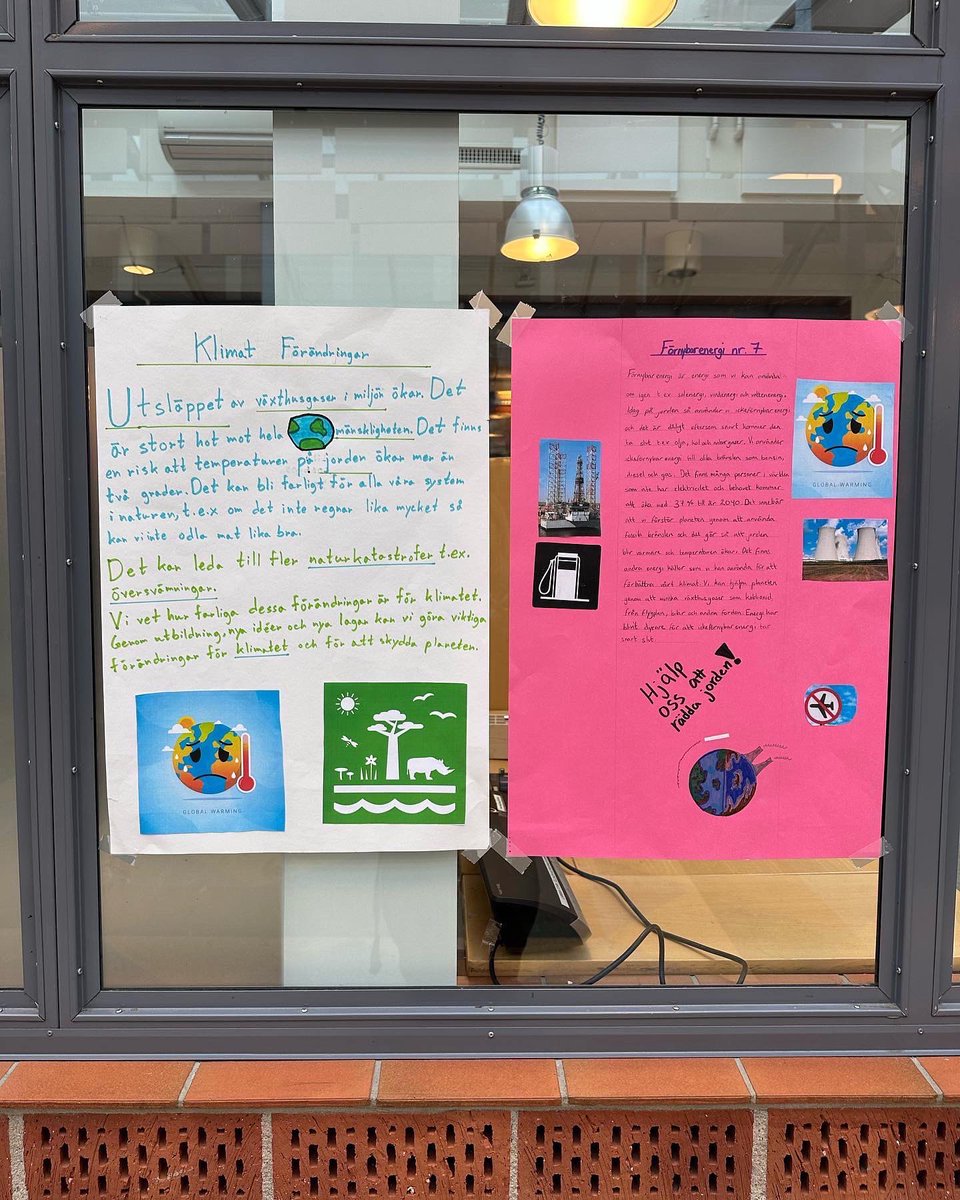 Klimat Förändringar
Utsläppet av växthusgaser i miljön ökar. Det
är stort hot mot hela mänskligheten. Det finns
en risk att temperaturen på jorden ökar mer än
två grader. Det kan bli farligt för alla våra system
i naturen, t.e.x om det inte regnar lika mycket så
kan vi inte odla mat lika bra.
Det kan leda till fler naturkatastrofer t.ex.
översvämningar.
Vi vet hur farliga dessa förändringar är för klimatet.
Genom utbildning, nya idéer och nya lagar kan vi göra viktiga
förändringar för klimatet och för att skydda planeten.
GLOBAL WARMING
Förnybar energi nr. 7
Förnybar energi är energi som vi kan använda
om igen t.ex solenergi, vindenergi och vattenenergi.
Idag på jorden så använder vi ickeförnybar energi
och det är dåligt eftersom snart kommer den
ta slut t.ex olja, kol och naturgaser. Vi använder
ickeförnybar energi till olika bränslen som bensin,
diesel och gas. Det finns många personer i världen
som inte har elektricitet och behovet kommer
att öka med 37% till år 2040. Det innebär
att vi förstör planeten genom att använda
fossila bränslen och det gör så att jorden
blir varmare och temperaturen ökar. Det finns
andra energi källor som vi kan använda för att
förbättra vårt klimat. Vi kan hjälpa planeten
genom att minska växthusgaser som koldioxid
från flygplan, bilar och andra fordon. Energi har
blivit dyrare för att ickeförnybar energi tar
snart slut.
GLOBAL WARMING
Hjälp
oss att
rädda jorden!